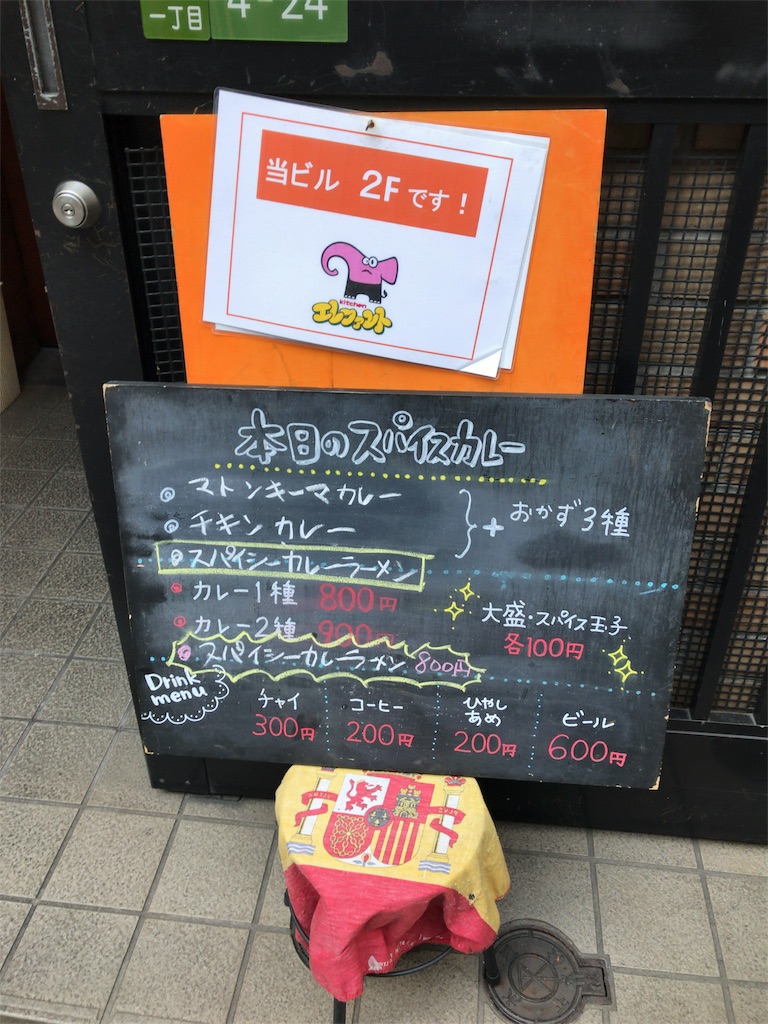 一丁目
4-24
当ビル 2Fです！
kitchen
エレファント
本日のスパイスカレー
◎ マトンキーマカレー
◎ チキンカレー
} + おかず3種
◎ スパイシーカレーラーメン
カレー1種 800円
カレー2種 900円
大盛・スパイス玉子
各100円
スパイシーカレーラーメン 800円
Drink menu
チャイ
300円
コーヒー
200円
ひやし
あめ
200円
ビール
600円